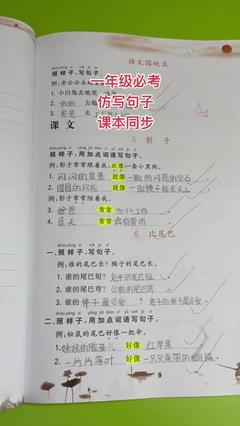 语文园地五
照样子,写句子。
一年级必考
仿写句子
课本同步
1. 小白兔去地里
2. 去地
3. 爸爸 去
课文
5 影子
照样子,用加点词语写句子。
例:影子常常跟着我,就像一条小黑狗。
1. 闪闪的星星 就像
2. 圆圆的月亮 就像
例:影子常常陪着我。
3. 爸爸 常常 工作
4. 夏天 常常 会有雷雨
6 比尾巴
一、照样子,写句子。
例:谁的尾巴长?猴子的尾巴长。
1. 谁的尾巴短? 兔子的尾巴短
2. 谁的尾巴弯?
3. 谁的 鼻子最可爱 ?
二、照样子,用加点词语写句子。
例:松鼠的尾巴好像一把伞。
1. 妹妹的脸蛋儿 好像 红苹果
2. 一片片落叶 好像 一只只美丽的蝴蝶
9